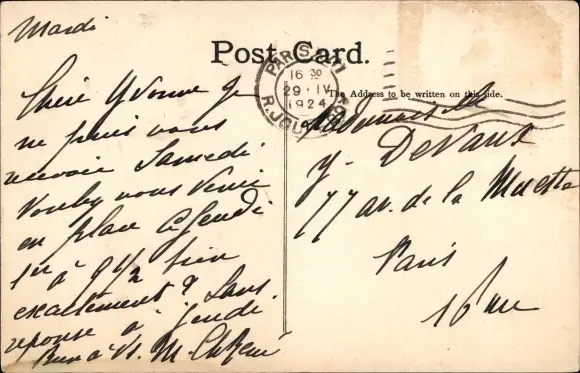 Mardi
Post Card.
The Address to be written on this side.
PARIS
16 30
29 · IV
1924
Chère Yvonne je
ne puis vous
recevoir Samedi
Voulez vous venir
en place Jeudi
1er à 9 1/2 bien
exactement ? Sans
réponse à jeudi.
Bien à V.
Mademoiselle
Y. Devaux
77 av. de la Muette
Paris
16 eme